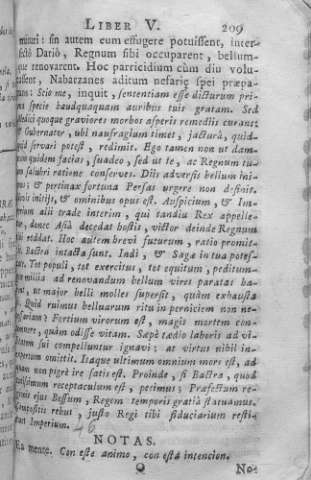 LIBER V. 209
mituri: sin autem eum effugere potuissent, inter-
fectô Dariô, Regnum sibi occuparent, bellum-
que renovarent. Hoc parricidium cùm diu volu-
tassent, Nabarzanes aditum nefariæ spei præpa-
rans: Scio me, inquit, sententiam esse dicturum pri-
ma specie haudquaquam auribus tuis gratam. Sed
Medici quoque graviores morbos asperis remediis curant:
& Gubernator, ubi naufragium timet, jacturâ, quid-
quid servari potest, redimit. Ego tamen non ut dam-
num quidem facias, suadeo, sed ut te, ac Regnum tu-
um salubri ratione conserves. Diis adversis bellum ini-
mus; & pertinax fortuna Persas urgere non desinit.
Novis initiis, & ominibus opus est. Auspicium, & Im-
perium alii trade interim, qui tandiu Rex appelle-
tur, donec Asiâ decedat hostis, victor deinde Regnum
tibi reddat. Hoc autem brevi futurum, ratio promit-
tit. Bactra intacta sunt. Indi, & Sagæ in tua potes-
tate. Tot populi, tot exercitus, tot equitum, peditum-
que millia ad renovandum bellum vires paratas ha-
bent, ut major belli moles supersit, quàm exhausta
Quid ruimus belluarum ritu in perniciem non ne-
cessariam? Fortium virorum est, magis mortem con-
temnere, quàm odisse vitam. Sæpè tædio laboris ad vi-
sui compelluntur ignavi: at virtus nihil in-
expertum omittit. Itaque ultimum omnium mors est, ad
quam non pigrè ire satis est. Proinde, si Bactra, quod
receptaculum est, petimus; Præfectum re-
ejus Bessum, Regem temporis gratiâ statuamus.
Compositis rebus, justo Regi tibi fiduciarium resti-
tuet Imperium. 46
NOTAS.
Ea mente. Con este animo, con esta intencion.
Q No-